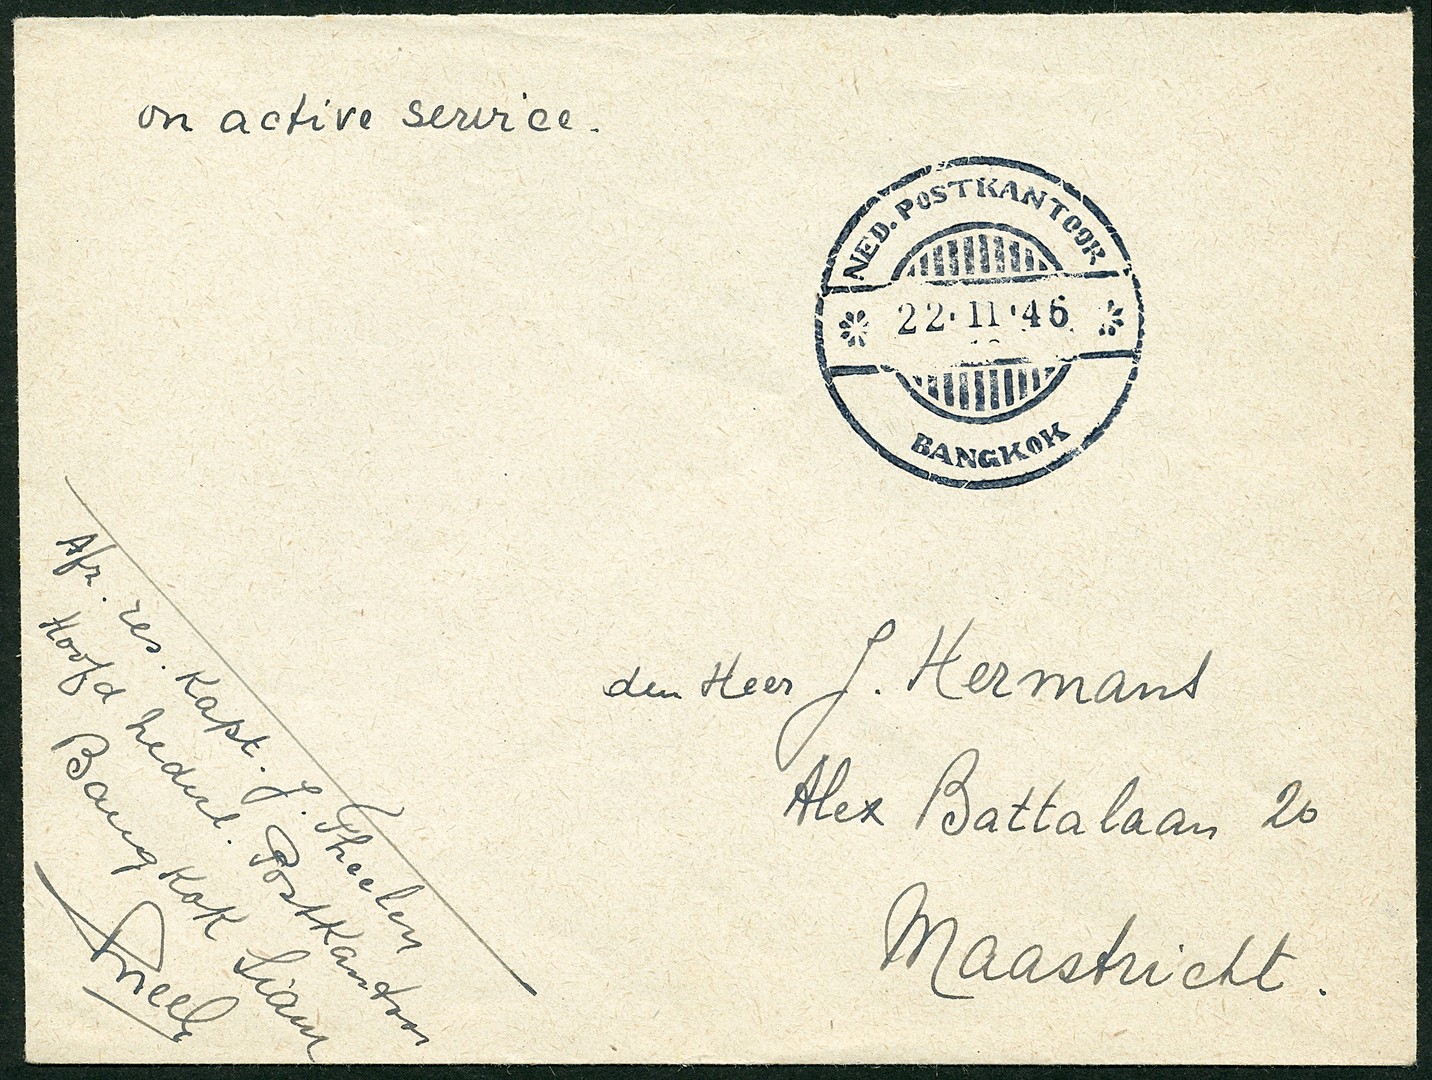 on active service.
NED. POSTKANTOOR
22·11·46
BANGKOK
den Heer J. Hermans
Alex Battalaan 20
Maastricht.
Afz. res. Kapt. J. Theelen
Hoofd Nederl. Postkantoor
Bangkok Siam